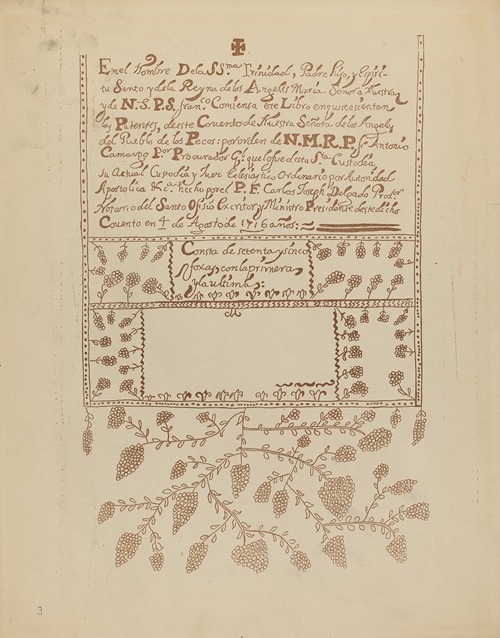 En el Nombre De la SS.ma Trinidad, Padre Hijo, y Espiri-
tu Santo y de la Reyna de los Angeles Maria Señora Nuestra
y de N.S.P.S. fran.co Comiensa este Libro en que se asientan
las Patentes, de este Convento de Nuestra Señora de los Angeles
del Pueblo de los Pecos: por orden de N.M.R.P. fr Antonio
Camargo P.or Procurador G.l que fue de esta S.ta Custodia
Su Actual Custodio y Juez Eclesiastico Ordinario por Autoridad
Apostolica &.a Recho por el P. F. Carlos Joseph Delgado
Notario del Santo Ofisio Escritor y Ministro Presidente de este dicho
Convento en 4 de Agosto de 1716 años:
Consta de setenta y sinco
foxas con la primera
y la ultima:
3